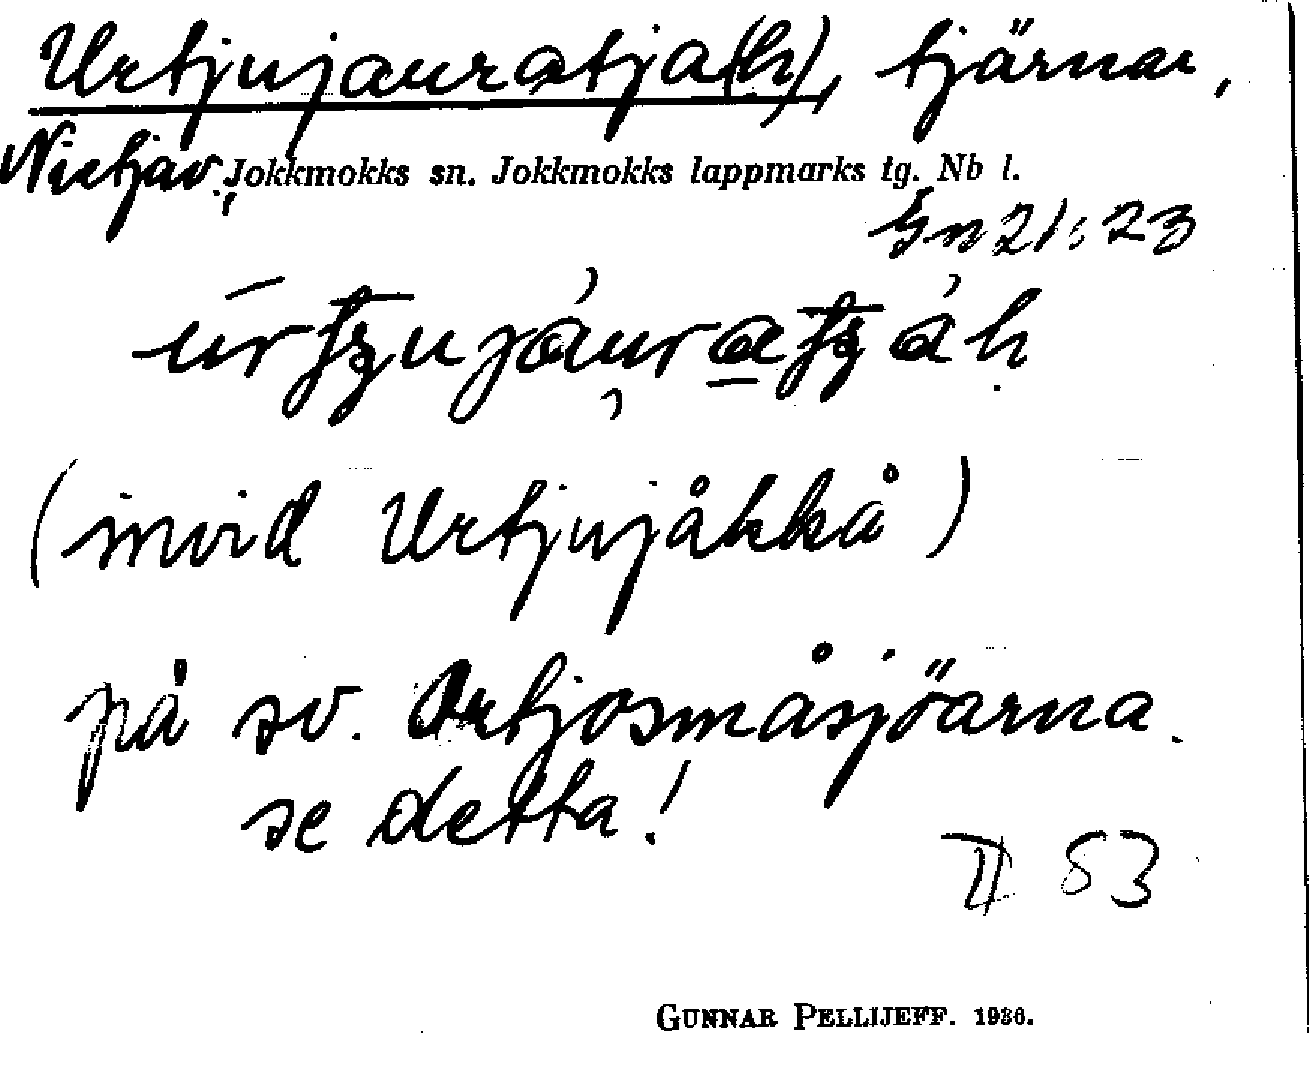 Urtjujauratja(h), tjärnar,
Nietjav, Jokkmokks sn. Jokkmokks lappmarks tg. Nb l.
Gn 21:23
(invid Urtjujåkkå)
på sv. Ortjosmåsjöarna.
se detta!
II 53
GUNNAR PELLIJEFF. 1936.